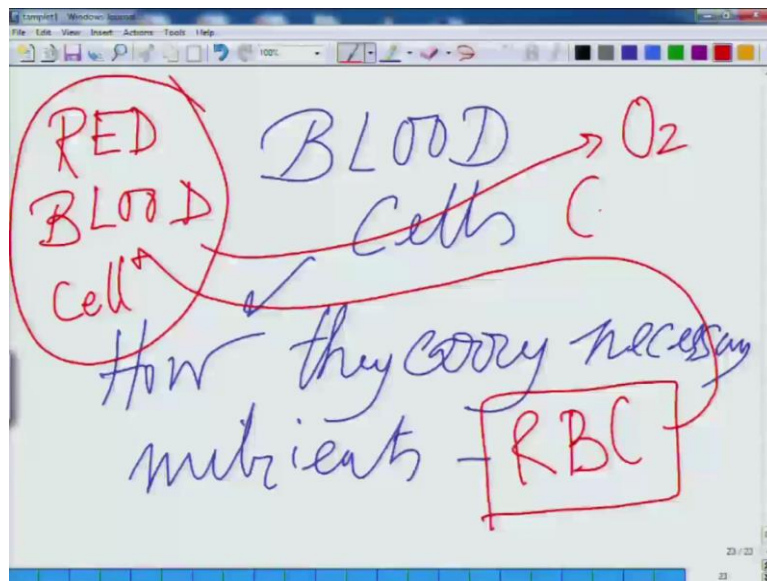 File Edit View Insert Actions Tools Help
100%
RED
BLOOD
Cell
BLOOD
Cells
O2
C
How they carry necessary
nutrients - RBC
23 / 23
23